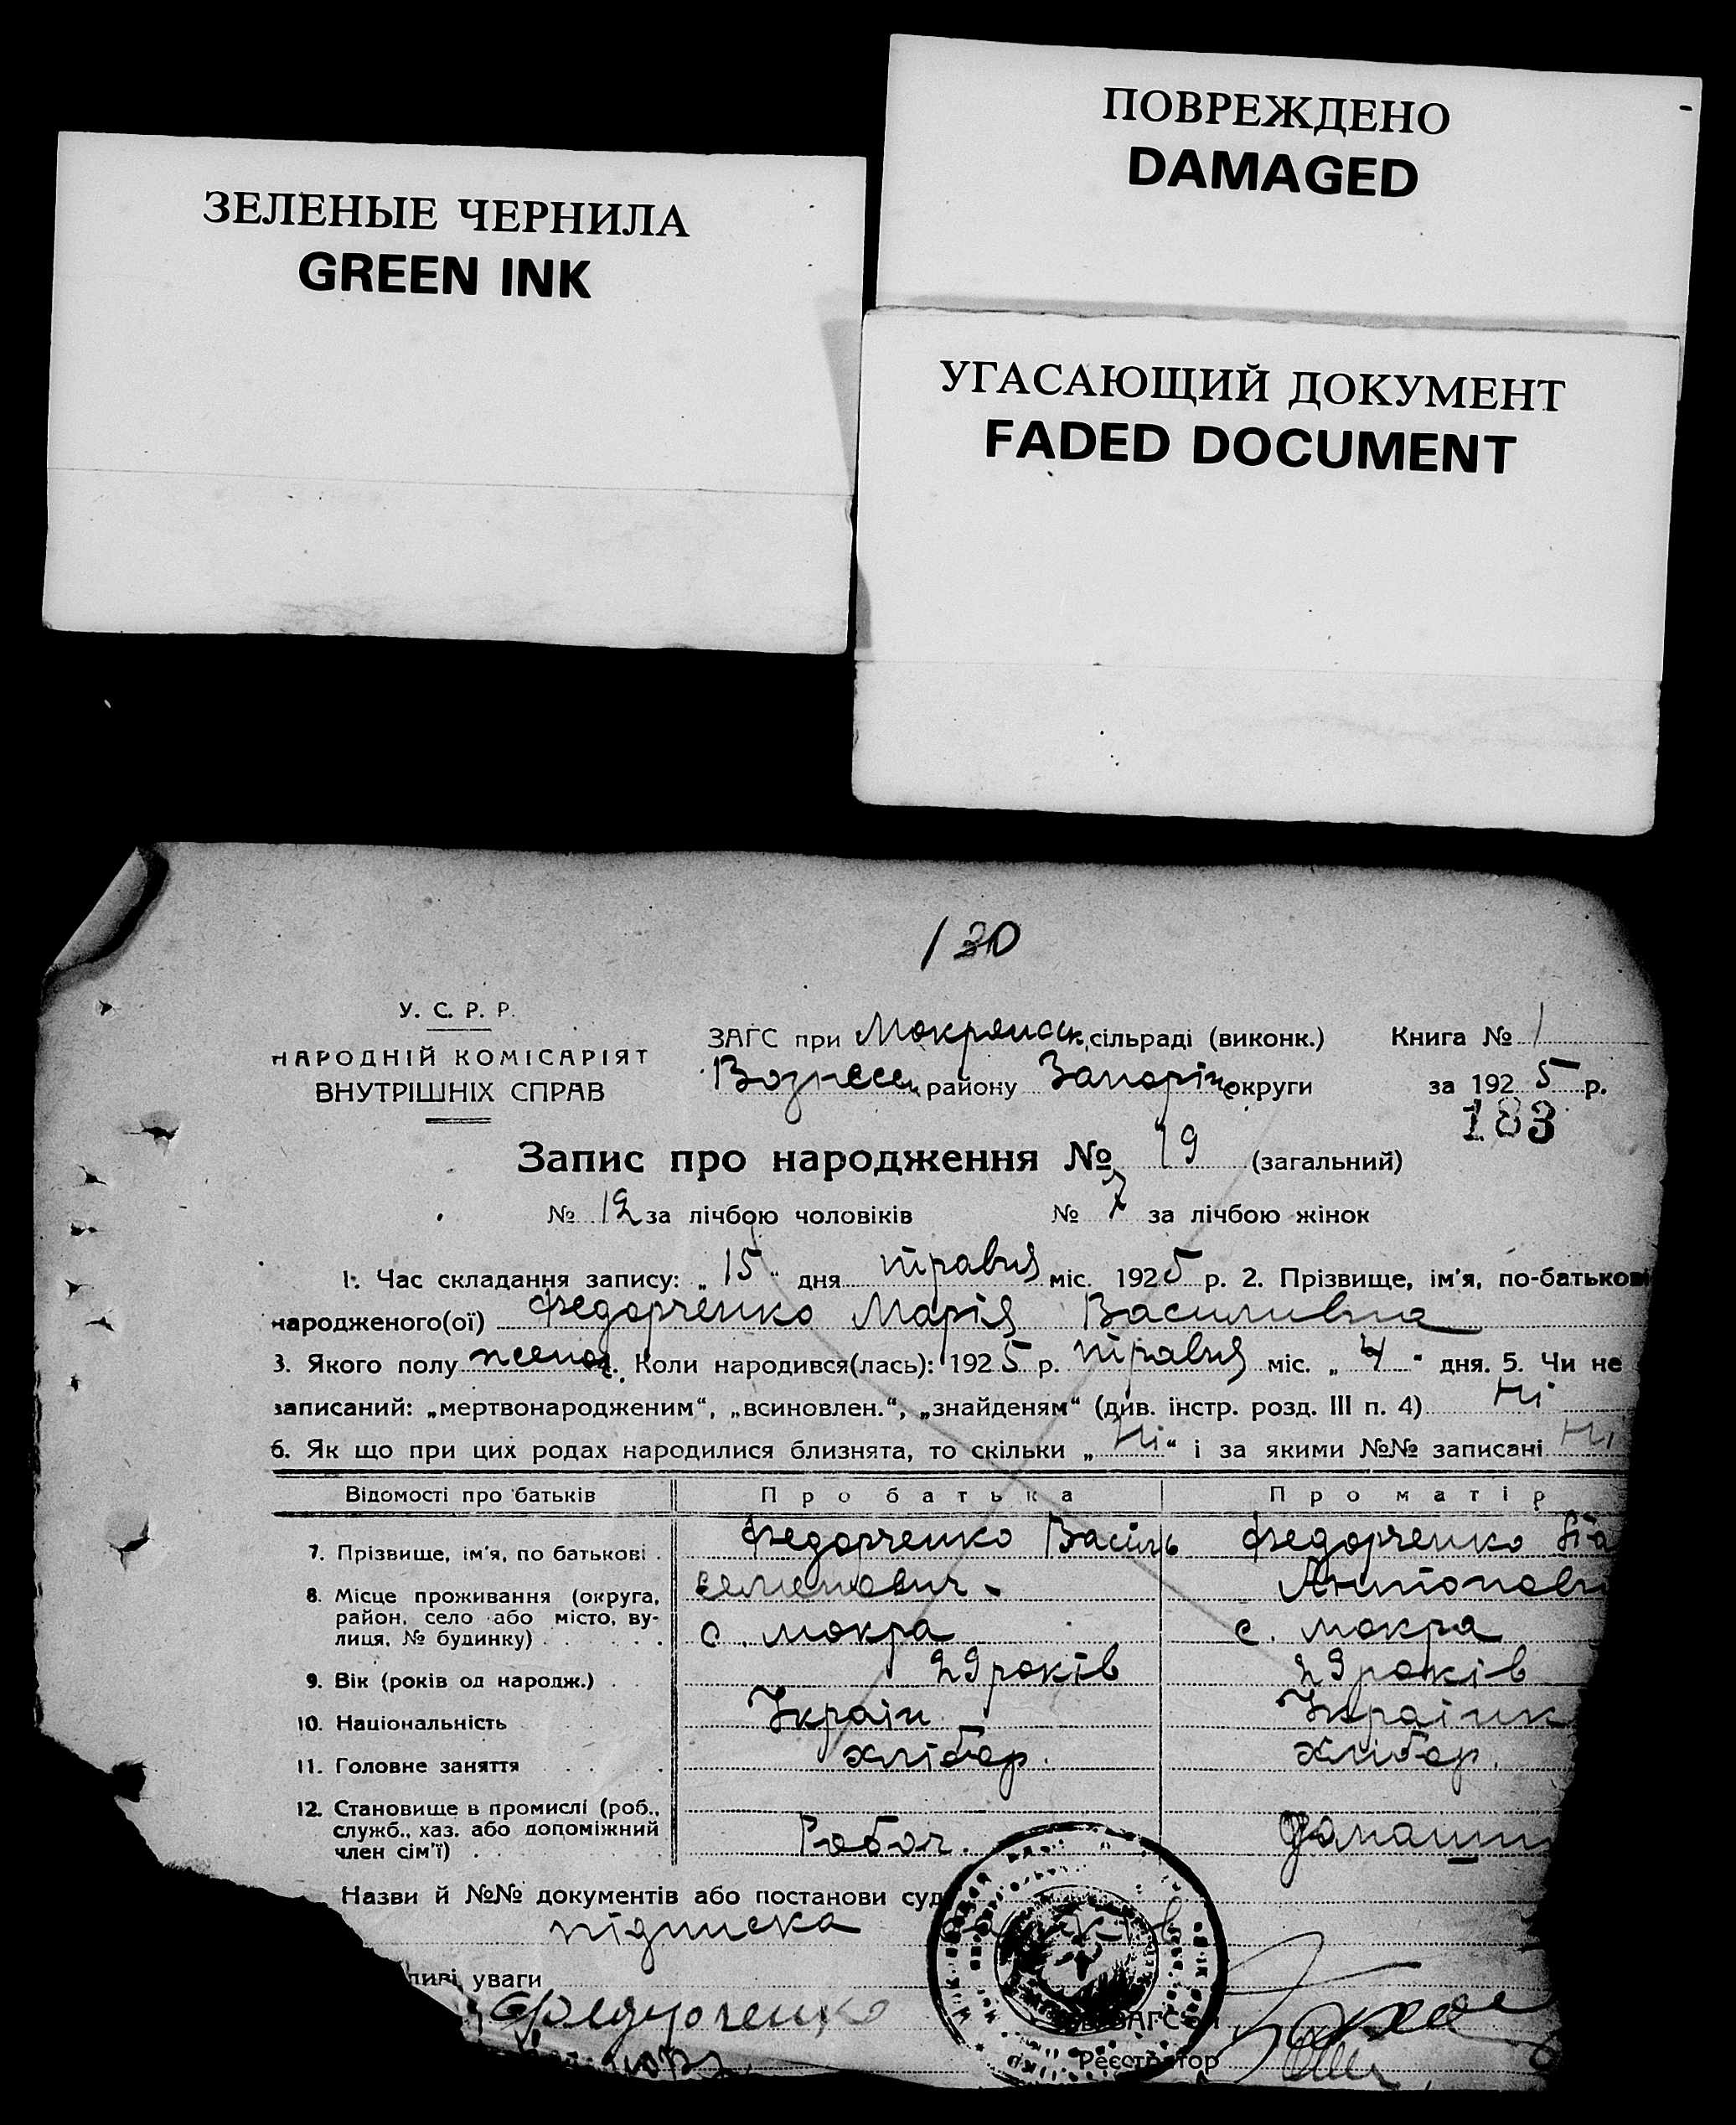 ПОВРЕЖДЕНО
DAMAGED
ЗЕЛЕНЫЕ ЧЕРНИЛА
GREEN INK
УГАСАЮЩИЙ ДОКУМЕНТ
FADED DOCUMENT
130
У. С. Р. Р.
НАРОДНІЙ КОМІСАРІЯТ
ВНУТРІШНІХ СПРАВ
ЗАГС при Мокрянськ. сільраді (виконк.) Книга № 1
Вознесен. району Запоріж. округи за 1925 р.
183
Запис про народження № 19 (загальний)
№ 12 за лічбою чоловіків № 7 за лічбою жінок
1. Час складання запису: „15" дня травня міс. 1925 р. 2. Прізвище, ім'я, по-батькові
народженого(ої) Федорченко Марія Василивна
3. Якого полу Коли народився(лась): 1925 р. травня міс. „4" дня. 5. Чи не
записаний: „мертвонародженим", „всиновлен.", „знайденям" (див. інстр. розд. III п. 4) Ні
6. Як що при цих родах народилися близнята, то скільки „Ні" і за якими №№ записані Ні
Відомості про батьків Про батька Про матір
7. Прізвище, ім'я, по батькові . Федорченко Василь Федорченко
Семенович. Антоновн
8. Місце проживання (округа, район, село або місто, вулиця, № будинку) с. мокра с. мокра
9. Вік (років од народж.) 29 років 29 років
10. Національність Україн   Українк
11. Головне заняття хлібор. хлибор.
12. Становище в промислі (роб., служб., хаз. або допоміжний член сім'ї) Робоч.
Назви й №№ документів або постанови суд
підписка
ливі уваги
Федорченко
ЗАГС'ом
Реєстратор